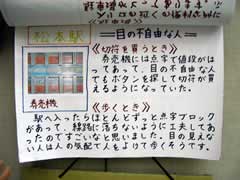 松本駅
＝目の不自由な人＝
《切符を買うとき》
券売機には点字で値段がは
ってあって、目の不自由な人
でもボタンを探して切符が買
えるようになっていた。
券売機
《歩くとき》
駅へ入ったらほとんどずっと点字ブロック
があって、線路に落ちないように工夫してあ
ったのですごいなと思いました。目の見えな
い人は人の気配で人をよけて歩くそうです。